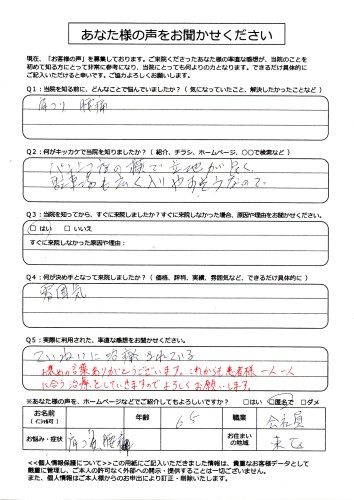 あなた様の声をお聞かせください
現在、「お客様の声」を募集しております。ご来院くださったあなた様の率直な感想が、当院のことを
初めて知る方にとって非常に参考になり、当院にとっても何よりの力となります。できるだけ具体的に
ご記入いただけると幸いです。ご協力よろしくお願いします。
Q1:当院を知る前に、どんなことで悩んでいましたか?(気になっていたこと、解決したかったことなど)
肩こり 腰痛
Q2:何がキッカケで当院を知りましたか?(紹介、チラシ、ホームページ、〇〇で検索など)
で立地が良く
駐車場も広く入りやすそうなので
Q3:当院を知ってから、すぐに来院しましたか?すぐに来院しなかった場合、原因や理由をお聞かせください。
□はい □いいえ
すぐに来院しなかった原因や理由:
Q4:何が決め手となって来院しましたか?(価格、評判、実績、雰囲気など、できるだけ具体的に)
雰囲気
Q5:実際に利用された、率直な感想をお聞かせください。
ていねいに治療されている
お褒めの言葉ありがとうございます。これからも患者様一人一人
に合う治療をしていきますのでよろしくお願いします。
※あなた様の声を、ホームページなどでご紹介してもよろしいですか? □はい □匿名で □ダメ
お名前 年齢 65 職業 会社員
(イニシャル可)
お悩み・症状 肩こり 腰痛 お住まいの地域
<<個人情報保護について>>この用紙にご記入いただきました情報は、貴重なお客様データとして
厳重に管理し、ご本人の許可なく外部への開示・提供することは一切ございません。
また、個人情報はご本人様からのお申出により訂正・削除いたします。